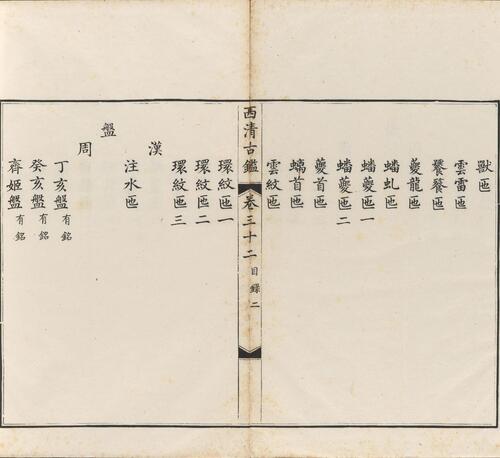 獸匜
雲雷匜
饕餮匜
夔龍匜
蟠虬匜
蟠夔匜一
蟠夔匜二
夔首匜
螭首匜
雲紋匜
西清古鑑 卷三十二 目錄 二
環紋匜一
環紋匜二
環紋匜三
漢
注水匜
盤
周
丁亥盤有銘
癸亥盤有銘
齊姬盤有銘